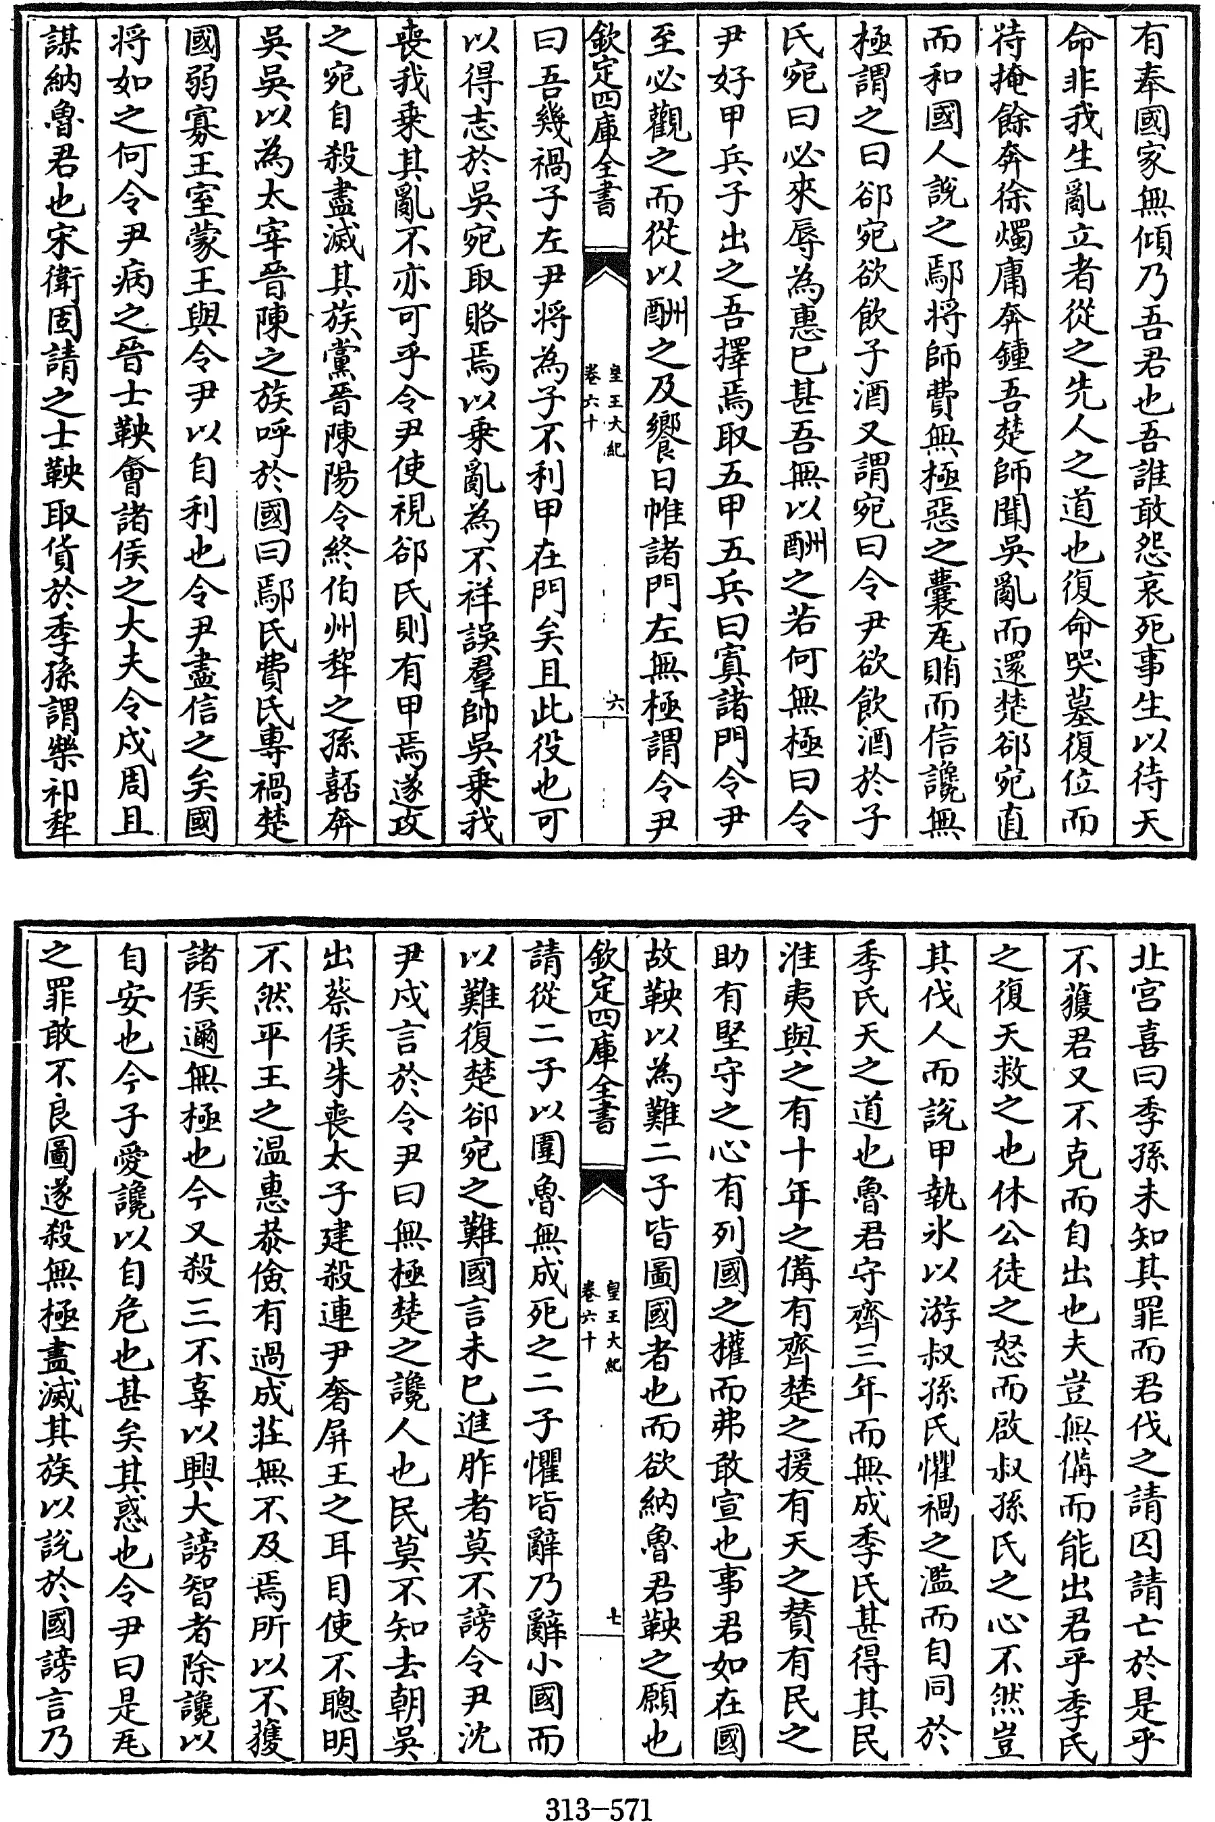 有奉國家無傾乃吾君也吾誰敢怨哀死事生以待天
命非我生亂立者從之先人之道也復命哭墓復位而
待掩餘奔徐燭庸奔鍾吾楚師聞吳亂而還楚郤宛直
而和國人說之鄢將師費無極惡之囊瓦賄而信讒無
極謂之曰郤宛欲飲子酒又謂宛曰令尹欲飲酒於子
氏宛曰必來辱為惠已甚吾無以酬之若何無極曰令
尹好甲兵子出之吾擇焉取五甲五兵曰寘諸門令尹
至必觀之而從以酬之及饗日帷諸門左無極謂令尹
欽定四庫全書
皇王大紀
卷六十
六
曰吾幾禍子左尹將為子不利甲在門矣且此役也可
以得志於吳宛取賂焉以乘亂為不祥誤羣帥吳乗我
喪我乗其亂不亦可乎令尹使視郤氏則有甲焉遂攻
之宛自殺盡滅其族黨晉陳陽令終伯州犂之孫嚭奔
吳吳以為太宰晉陳之族呼於國曰鄢氏費氏專禍楚
國弱寡王室蒙王與令尹以自利也令尹盡信之矣國
將如之何令尹病之晉士鞅會諸侯之大夫令戍周且
謀納魯君也宋衛固請之士鞅取貨於季孫謂樂祁犂
北宫喜曰季孫未知其罪而君伐之請囚請亡於是乎
不獲君又不克而自出也夫豈無備而能出君乎季氏
之復天救之也休公徒之怒而啟叔孫氏之心不然豈
其伐人而說甲執氷以游叔孫氏懼禍之濫而自同於
季氏天之道也魯君守齊三年而無成季氏甚得其民
淮夷與之有十年之備有齊楚之援有天之賛有民之
助有堅守之心有列國之權而弗敢宣也事君如在國
故鞅以為難二子皆圖國者也而欲納魯君鞅之願也
欽定四庫全書
皇王大紀
卷六十
七
請從二子以圍魯無成死之二子懼皆辭乃辭小國而
以難復楚郤宛之難國言未已進胙者莫不謗令尹沈
尹戍言於令尹曰無極楚之讒人也民莫不知去朝吳
出蔡侯朱喪太子建殺連尹奢屏王之耳目使不聰明
不然平王之温惠恭儉有過成莊無不及焉所以不獲
諸侯邇無極也今又殺三不辜以興大謗智者除讒以
自安也今子愛讒以自危也甚矣其惑也令尹曰是瓦
之罪敢不良圖遂殺無極盡滅其族以說於國謗言乃
313-571